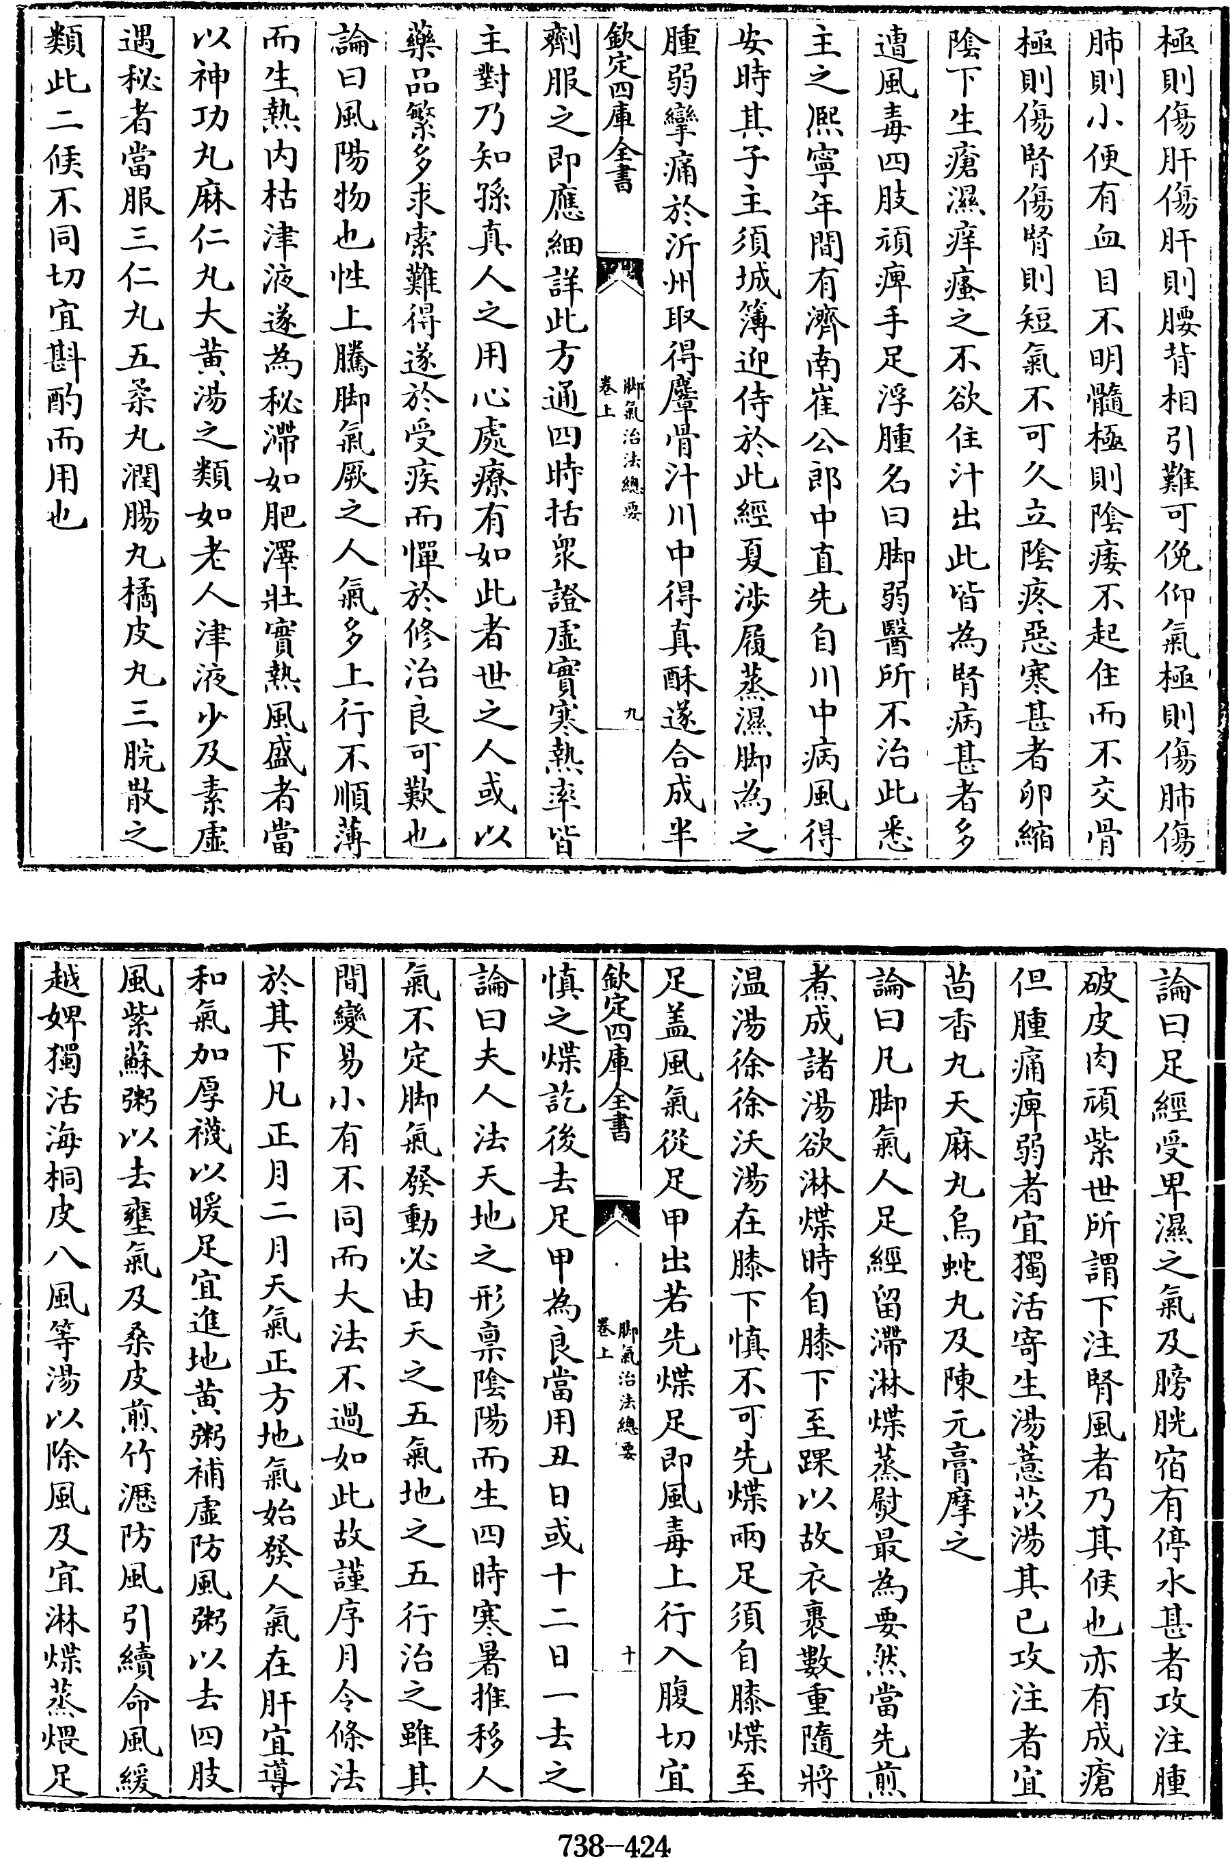 極則傷肝傷肝則腰背相引難可俛仰氣極則傷肺傷
肺則小便有血目不明髓極則陰痿不起住而不交骨
極則傷腎傷腎則短氣不可久立陰疼惡寒甚者卵縮
陰下生瘡濕痒搔之不欲住汁出此皆為腎病甚者多
遭風毒四肢頑痺手足浮腫名曰脚弱醫所不治此悉
主之熈寧年間有濟南崔公郎中直先自川中病風得
安時其子主須城簿迎侍於此經夏渉履蒸濕脚為之
腫弱攣痛於沂州取得麞骨汁川中得真酥遂合成半
欽定四庫全書
脚氣治法總要
卷上
九
劑服之即應細詳此方通四時括衆證虛實寒熱率皆
主對乃知孫真人之用心處療有如此者世之人或以
藥品繁多求索難得遂於受疾而憚於修治良可歎也
論曰風陽物也性上騰脚氣厥之人氣多上行不順薄
而生熱内枯津液遂為秘滯如肥澤壯實熱風盛者當
以神功丸麻仁丸大黄湯之類如老人津液少及素虛
遇秘者當服三仁丸五柔丸潤腸丸橘皮丸三脘散之
類此二候不同切宜斟酌而用也
論曰足經受卑濕之氣及膀胱宿有停水甚者攻注腫
破皮肉頑紫世所謂下注腎風者乃其候也亦有成瘡
但腫痛痺弱者宜獨活寄生湯薏苡湯其已攻注者宜
茴香丸天麻丸烏蛇丸及陳元膏摩之
論曰凡脚氣人足經留滯淋煠蒸熨最為要然當先煎
煮成諸湯欲淋煠時自膝下至踝以故衣裹數重隨將
温湯徐徐沃湯在膝下慎不可先煠兩足須自膝煠至
足盖風氣從足甲出若先煠足即風毒上行入腹切宜
欽定四庫全書
脚氣治法總要
卷上
十
慎之煠訖後去足甲為良當用丑日或十二日一去之
論曰夫人法天地之形禀陰陽而生四時寒暑推移人
氣不定脚氣發動必由天之五氣地之五行治之雖其
間變易小有不同而大法不過如此故謹序月令條法
於其下凡正月二月天氣正方地氣始發人氣在肝宜導
和氣加厚襪以暖足宜進地黄粥補虛防風粥以去四肢
風紫蘇粥以去壅氣及桑皮煎竹瀝防風引續命風緩
越婢獨活海桐皮八風等湯以除風及宜淋煠蒸煨足
738-424